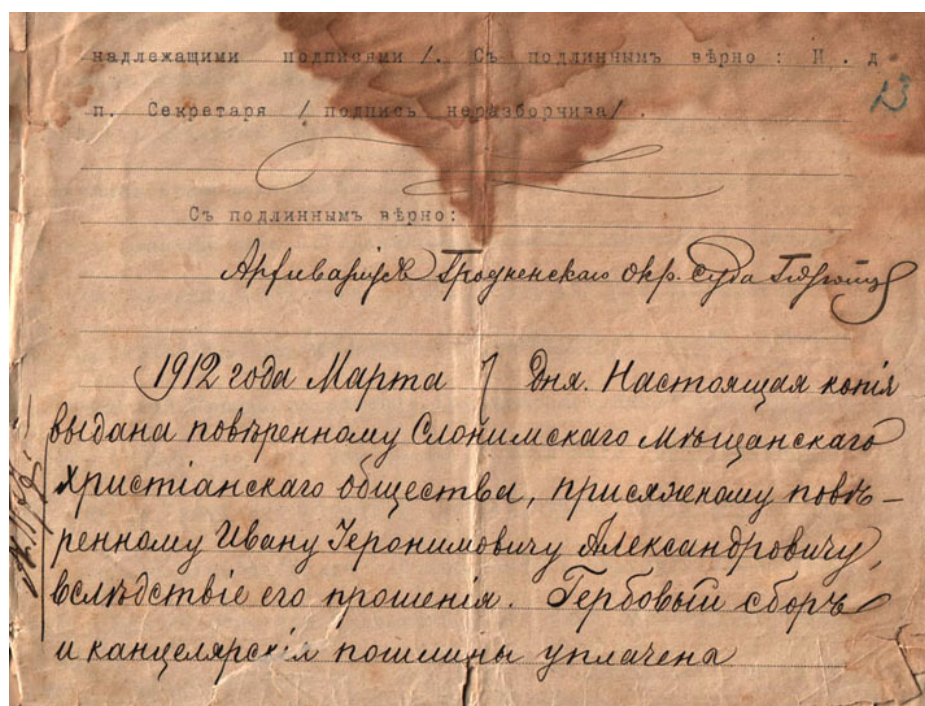 надлежащими подписями /. Съ подлиннымъ вѣрно : И . д
п. Секретаря / подпись неразборчива/ .
Съ подлиннымъ вѣрно:
Архиваріусъ Гродненскаго Окр. Суда
1912 года Марта 7 дня. Настоящая копія
выдана повѣренному Слонимскаго Мѣщанскаго
христіанскаго общества, присяжному повѣ-
ренному Ивану Іеронимовичу Александровичу,
вслѣдствіе его прошенія. Гербовый сборъ
и канцелярскія пошлины уплачена